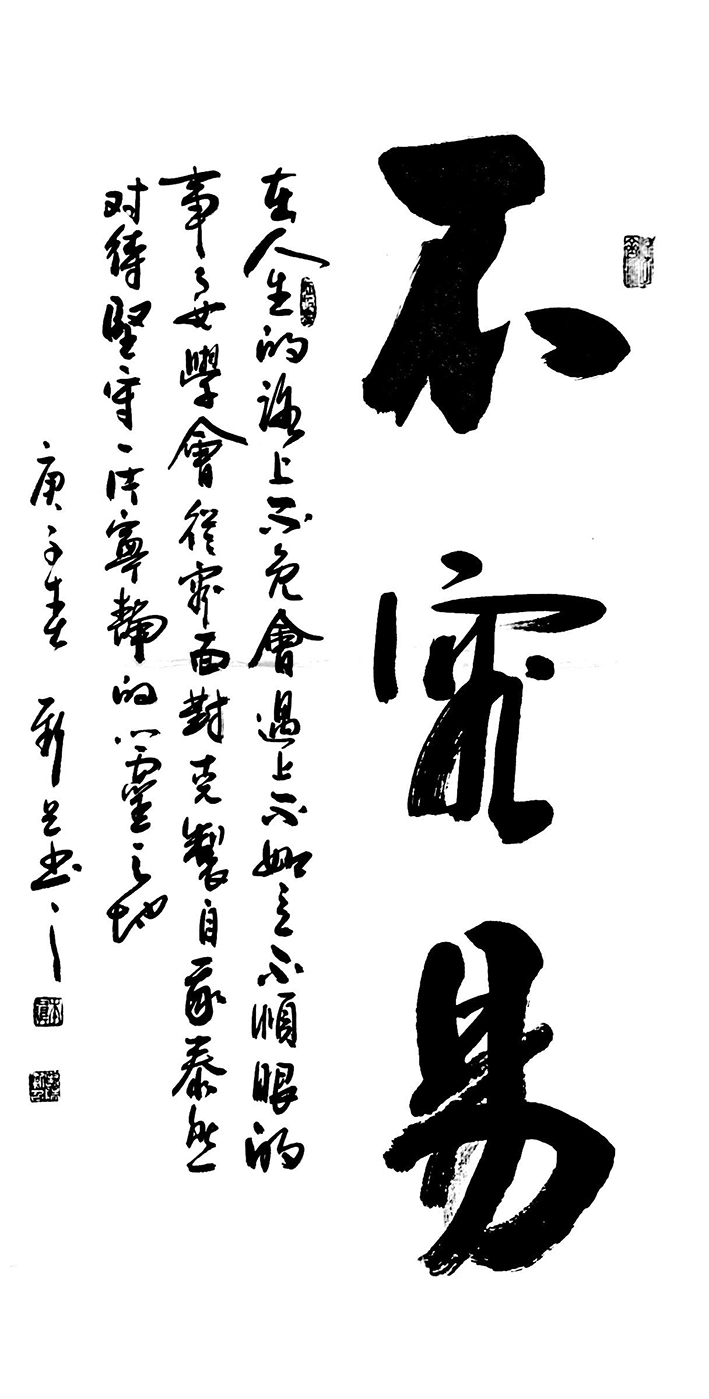 不容易
在人生的路上不免會遇上不如意不順眼的
事々要學會從容面對克製自我泰然
对待堅守一片寧靜的心靈之地
庚子春 书